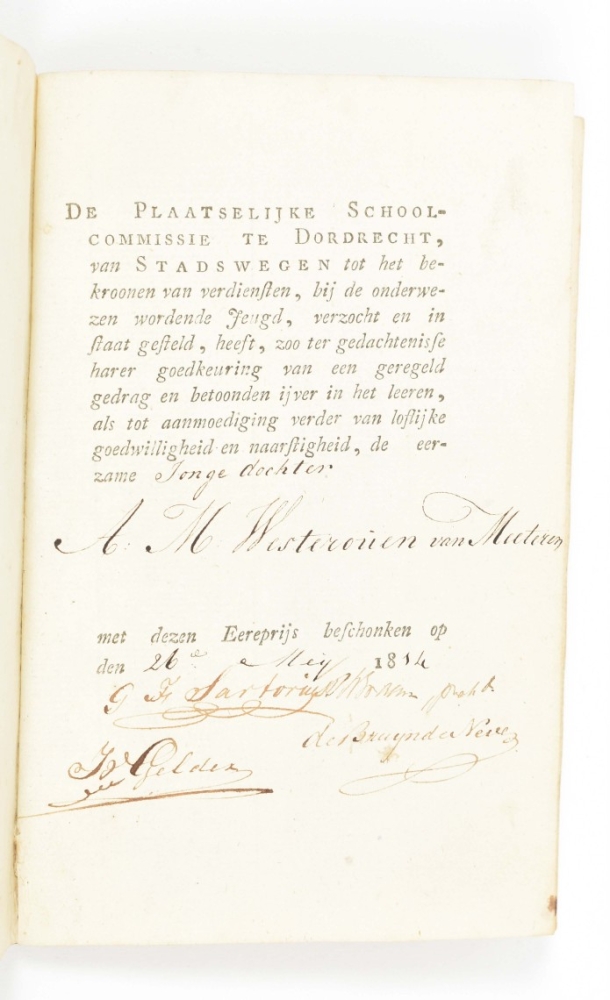 De Plaatselijke School-
commissie te Dordrecht,
van Stadswegen tot het be-
kroonen van verdienſten, bij de onderwe-
zen wordende Jeugd, verzocht en in
ſtaat geſteld, heeft, zoo ter gedachtenisſe
harer goedkeuring van een geregeld
gedrag en betoonden ijver in het leeren,
als tot aanmoediging verder van loflijke
goedwilligheid en naarſtigheid, de eer-
zame Jonge dochter
A: M: Westerouen van Meeteren
met dezen Eereprijs beſchonken op
den 26e Mey 1814
G Fr Sartorius
de Bruyn de Neve
Gelder